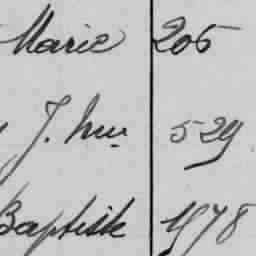 Marie 205
J. hm. 529
Baptiste 1978